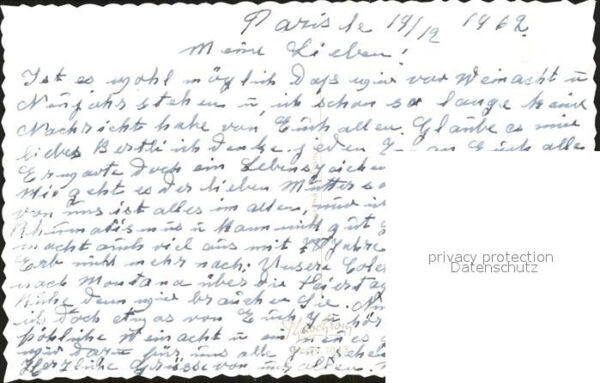 Paris le 19/12 1962
Meine Lieben!
Ist es wohl möglich Dass wir vor Weinacht u
Neujahr stehen u, ich schon so lange keine
Nachricht habe von Euch allen. Glaube es mir
liebes Bertli ich denke jeden an Euch alle
Erwarte doch ein Lebenszeichen
Wie geht es der lieben Mutter
von uns ist alles im alten, nur
Rhumatismus u kann nicht gut
macht auch viel aus mit Jahre
nicht mehr nach. Unsere
nach Montana über die Feiertag
Ruhe denn wir brauchen Sie.
ich doch etwas von Euch zu hör
fröhliche Weinacht u ein
wir Dara für uns alle
Herzliche Grüsse von uns allen.
privacy protection
Datenschutz